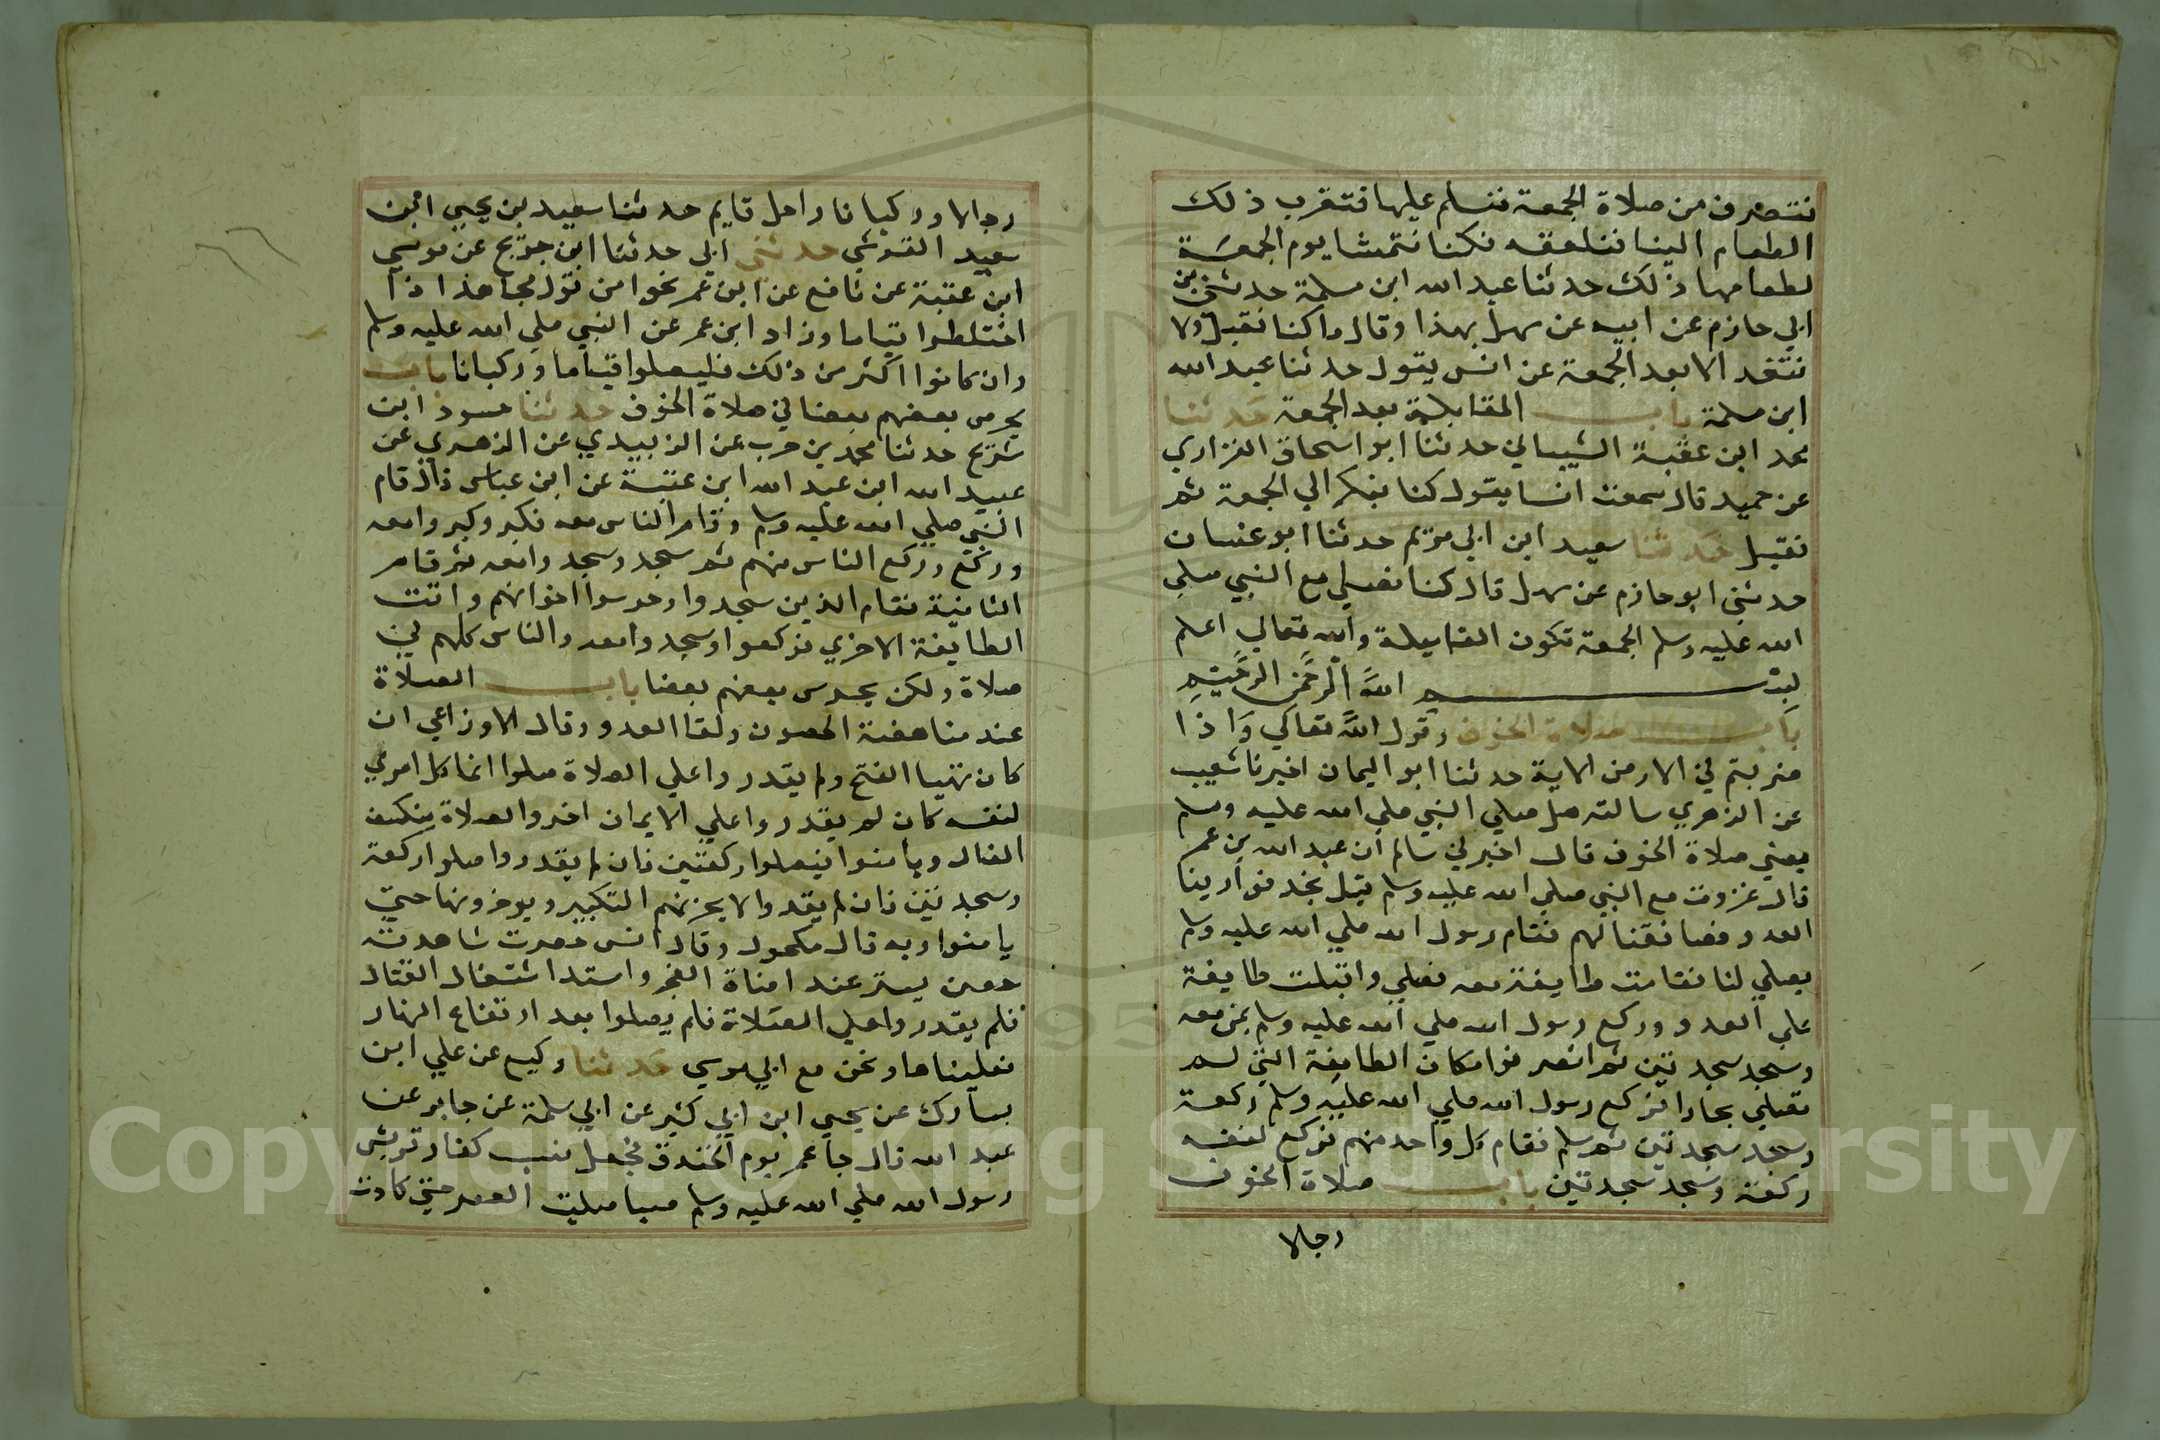 ننصرف من صلاة الجمعة فنسلم عليها فتقرب ذلك
الطعام الينا فنلعقه فكنا نتمشا يوم الجمعة
لطعامها ذلك حدثنا عبد الله ابن مسلمة حدثني بن
ابي حازم عن ابيه عن سهل بهذا وقال ما كنا نقيل ولا
نتغد الا بعد الجمعة عن انس يقول حدثنا عبد الله
ابن مسلمة باب المقايلة بعد الجمعة حدثنا
محمد ابن عقبة الشيباني حدثنا ابو اسحاق الفزاري
عن حميد قال سمعت انسا يقول كنا نبكر الي الجمعة ثم
نقيل حدثنا سعيد ابن ابي مريم حدثنا ابو غسان
حدثني ابو حازم عن سهل قال كنا نصلي مع النبي صلي
الله عليه وسلم الجمعة تكون القايلة والله تعالي اعلم
بسم الله الرحمن الرحيم
باب صلاة الخوف وقول الله تعالي واذا
ضربتم في الارض الاية حدثنا ابو اليمان اخبرنا شعيب
عن الزهري سالته هل صلي النبي صلي الله عليه وسلم
يعني صلاة الخوف قال اخبرني سالم ان عبد الله بن عمر
قال غزوت مع النبي صلي الله عليه وسلم قبل نجد فوارينا
العدو فصاففنا لهم فقام رسول الله صلي الله عليه وسلم
يصلي لنا فقامت طايفة معه فصلي واقبلت طايفة
علي العدو وركع رسول الله صلي الله عليه وسلم بمن معه
وسجد سجدتين ثم انصرفوا مكان الطايفة التي لم
تصلي بجاوا فركع رسول الله صلي الله عليه وسلم ركعة
وسجد سجدتين ثم سلم فقام كل واحد منهم فركع لنفسه
ركعة وسجد سجدتين باب صلاة الخوف
رجالا
رجالا وركبانا راحل قايم حدثنا سعيد بن يحيي ابن
سعيد القرشي حدثني ابي حدثنا ابن جريج عن موسي
ابن عقبة عن نافع عن ابن عمر نحوا من قول مجاهد اذا
اختلطوا قياما وزاد ابن عمر عن النبي صلي الله عليه وسلم
وان كانوا اكثر من ذلك فليصلوا قياما وركبانا باب
يحرس بعضهم بعضا في صلاة الخوف حدثنا حيوة ابن
شريح حدثنا محمد بن حرب عن الزبيدي عن الزهري عن
عبيد الله ابن عبد الله ابن عتبة عن ابن عباس قال قام
النبي صلي الله عليه وسلم وقام الناس معه فكبر وكبروا معه
وركع وركع الناس منهم ثم سجد وسجدوا معه ثم قام
الثانية فقام الذين سجدوا وحرسوا اخوانهم واتت
الطايفة الاخري فركعوا وسجدوا معه والناس كلهم في
صلاة ولكن يحرس بعضهم بعضا باب الصلاة
عند مناهضة الحصون ولقا العدو وقال الاوزاعي ان
كان تهيا الفتح ولم يقدروا علي الصلاة صلوا ايما كل امري
لنفسه فان لم يقدروا علي الايمان اخروا الصلاة ينكشف
القتال ويامنوا فيصلوا ركعتين فان لم يقدروا صلوا ركعة
وسجدتين فان لم يقدوا لا يجزئهم التكبير ويوخرونها حتي
يامنوا وبه قال مكحول وقال انس حضرت شاهدت
حصن يستر عند اضاة الفجر واستد اشتغال القتال
فلم يقدروا علي الصلاة فلم يصلوا بعد ارتفاع النهار
فصليناها ونحن مع ابي موسي حدثنا وكيع عن علي ابن
مبارك عن يحيي ابن ابي كثير عن ابي سلمة عن جابر عن
عبد الله قال جا عمر يوم الخندق فجعل يسب كفار قريش
رسول الله صلي الله عليه وسلم ميا صليت العصر حتي كادت